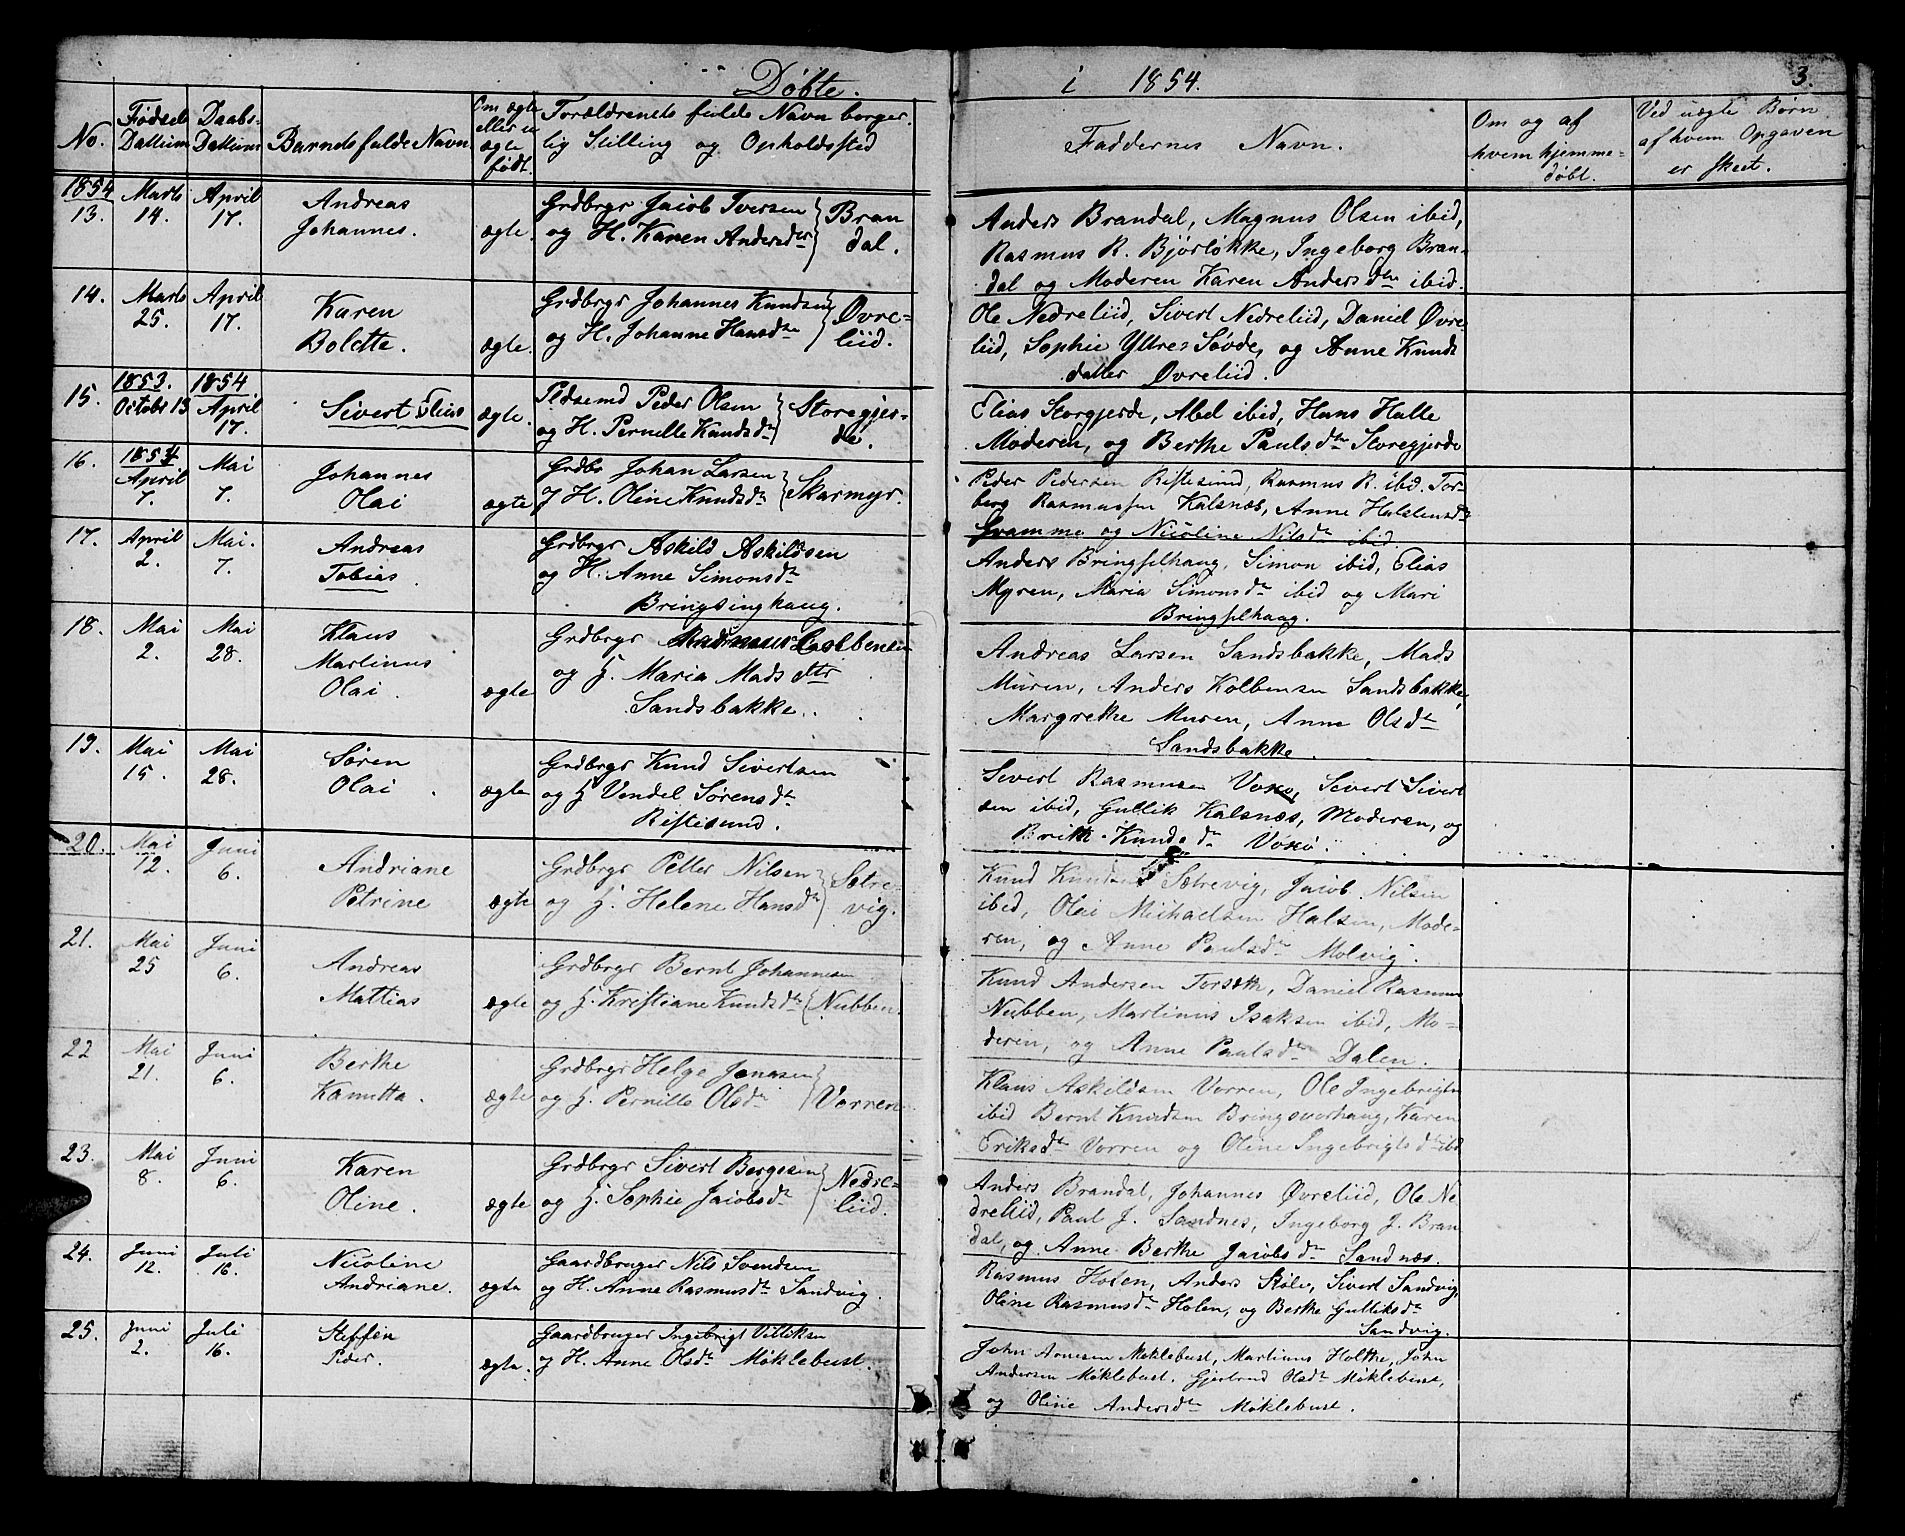 Døbte. i 1854. 3.
No. | Fødsels Dattum | Daabs- Dattum | Barnets fulde Navn | Om ægte eller u ægte født. | Forældrenes fulde Navn borger. lig Stilling og Opholdssted | Faddernes Navn. | Om og af hvem hjemme- døbt. | Ved uægte Børn af hvem Opgaven er skeet.
1854
13. | Marts 14. | April 17. | Andreas Johannes. | ægte. | Grdbrgr Jacob Iversen og H. Karen Andersdtr } Bran dal.
Anders Brandal, Magnus Olsen ibid,
Rasmus R. Bjørløkke, Ingeborg Bran-
dal og Moderen Karen Andersdtr ibid.
14. | Marts 25. | April 17. | Karen Bolette. | ægte. | Grdbrgr Johannes Knudsen og H. Johanne Hansdtr } Øvre- liid.
Ole Nedreliid, Sivert Nedreliid, Daniel Øvre-
liid, Sophie Yttre Søvde, og Anne Knuds
datter Øvreliid.
15. | 1853. Octobr 13 | 1854 April 17. | Sivert Elias | ægte. | Pedsemd Peder Olsen og H. Pernelle Knudsdtr } Storegjer- de.
Elias Storgjerde, Abel ibid, Hans Halle
Moderen, og Berthe Paulsdtr Storegjerde
16. | 1854 April 7. | Mai 7. | Johannes Olai | ægte | Grdbr Johan Larsen og H. Oline Knudsdtr } Skarmyr.
Peder Pedersen Riftesund, Rasmus R. ibid. Tor-
berg Rasmussen Kalsnæs, Anne Halstensdtr
Hvamme og Nicoline Nilsdtr ibid.
17. | April 2. | Mai. 7. | Andreas Tobias. | Grdbrgr Askild Askildsen og H. Anne Simonsdtr Bringsinghaug.
Anders Bringselhaug, Simon ibid, Elias
Myren, Maria Simonsdtr ibid og Mari
Bringselhaag.
18. | Mai 2. | Mai 28. | Klaus Martinus Olai. | ægte | Grdbrgr Rasmus Colbensen og H. Maria Mads dtr Sandsbakke.
Andreas Larsen Sandsbakke, Mads
Muren, Anders Kolbensen Sandsbakke,
Margrethe Muren, Anne Olsdtr
Sandsbakke.
19. | Mai 15. | Mai 28. | Søren Olai. | ægte | Grdbrgr Knud Sivertsen og H Vendel Sørensdtr Riftesund.
Sivert Rasmusen Voxø, Sivert Sivert
sen ibid, Gullik Kalsnæs, Moderen, og
Brithe Knudsdtr Voxø.
20. | Mai 12. | Juni 6. | Andriane Petrine | ægte | Grdbrgr Petter Nilsen og H. Helene Hansdtr } Sætre- vig.
Knud Knudsen Sætrevig, Jacob Nilsen
ibid, Olai Michaelsen Halsen, Mode-
ren, og Anne Paulsdtr Molvig.
21. | Mai 25 | Juni 6. | Andreas Mattias | ægte | Grdbrgr Bernt Johannesen og H. Kristiane Knudsdtr } Nubben.
Knud Andersen Torseth, Daniel Rasmus
Nubben, Martinus Isaksen ibid, Mo-
deren, og Anne Paulsdtr Dalen.
22 | Mai 21. | Juni 6. | Berthe Kanutta. | ægte | Grdbrgr Helge Jonasen og H. Pernille Olsdtr } Vorren
Klaus Askildsen Vorren, Ole Ingebrigtsn
ibid Bernt Knudsen Bringsvorhaug, Karen
Eriksdtr Vorren og Oline Ingebrigtsdtr ibid
23. | Mai 8. | Juni 6. | Karen Oline. | ægte | Grdbrgr Sivert Bergesen og H. Sophie Jacobsdtr } Nedre- liid.
Anders Brandal, Johannes Øvreliid, Ole Ne
dreliid, Paul J. Sandnes, Ingeborg J. Bran
dal, og Anne Berthe Jacobsdtr Sandnæs.
24. | Juni 12. | Juli 16. | Nicoline Andriane. | ægte | Gaardbruger Nils Svendsen og H. Anne Rasmusdtr Sandvig.
Rasmus Holen, Anders Støle, Sivert Sandvig,
Oline Rasmusdtr Holen, og Berthe Gulliksdtr
Sandvig.
25. | Juni 2. | Juli 16. | Steffen Peder. | ægte. | Gaardbruger Ingebrigt Villiksen og H. Anne Olsdtr Møklebust.
John Arnesen Møklebust, Martinus Holthe, John
Andersen Møklebust, Gjertrud Olsdtr Møklebust,
og Oline Andersdtr Møklebust.